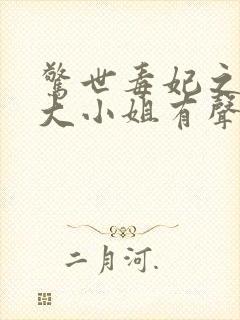 驚世毒妃之
大小姐有聲
二月河.